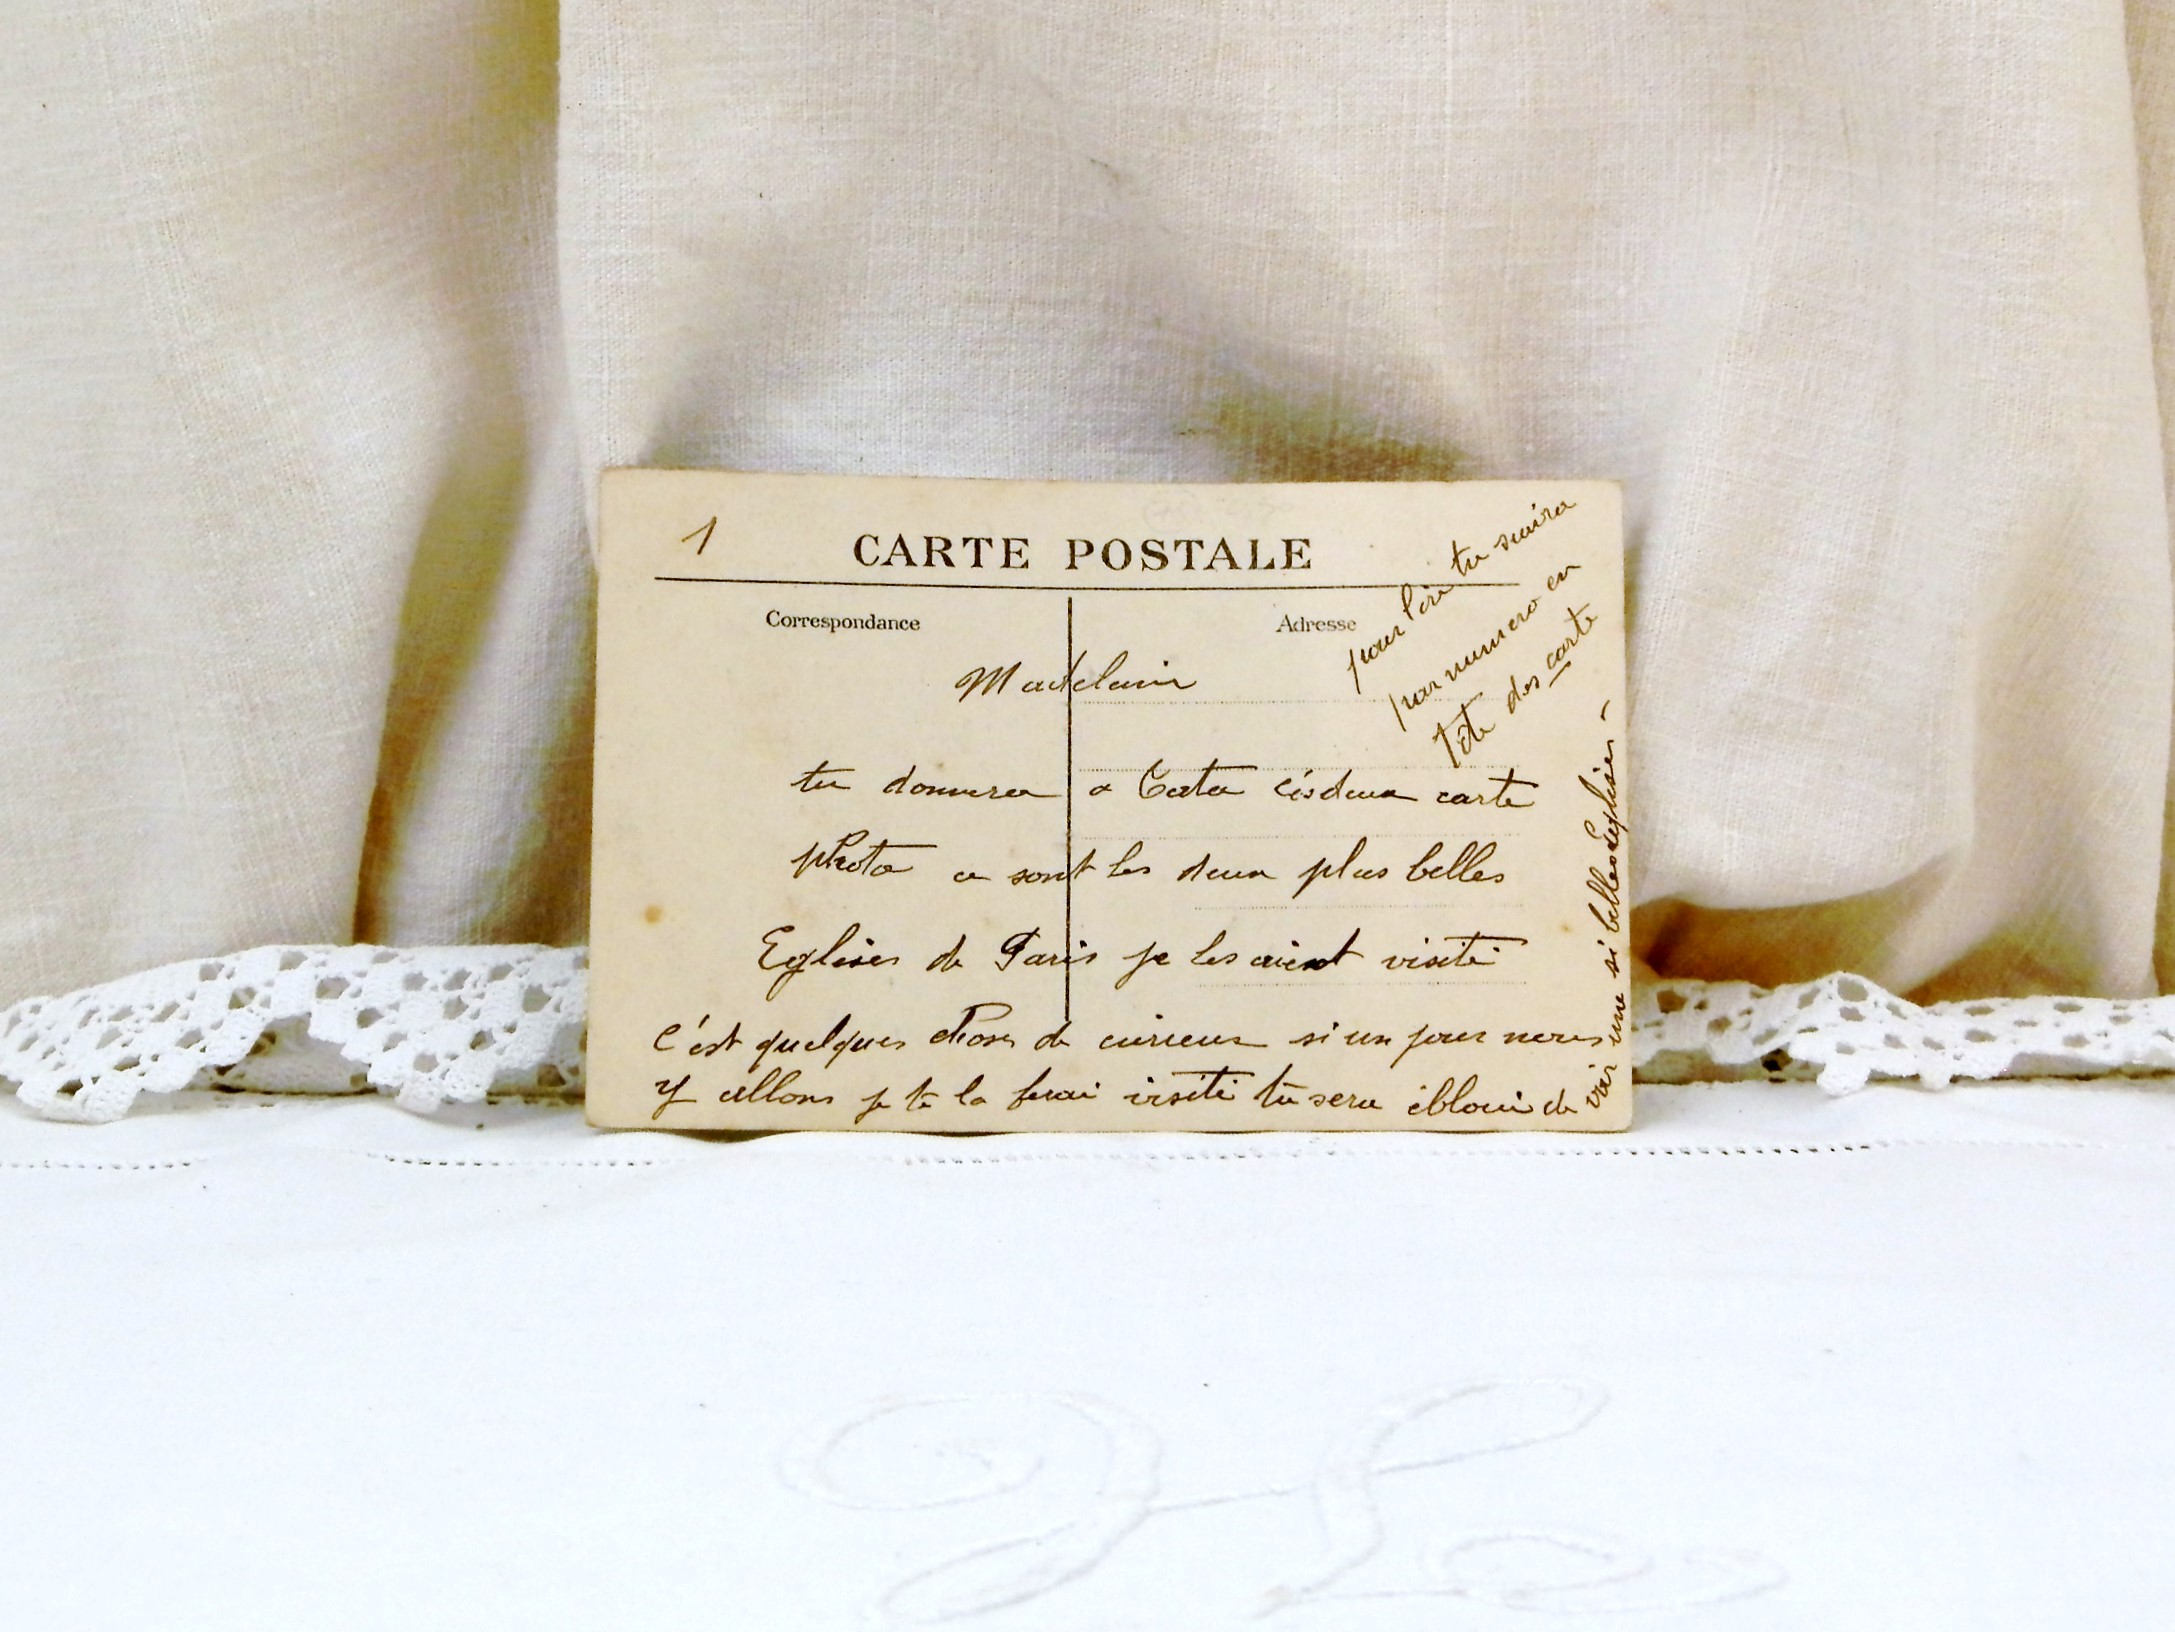 1
CARTE POSTALE
Correspondance
Adresse
pour lire tu suivra
par numero en
tete des carte
Madelain
tu donnera a Tata césdeux carte
photo ce sont les deux plus belles
Eglises de Paris je les visité
C'est quelques choses de curieux si un jour nous
y allons je te la ferai visité tu sera ébloui de
voir une si belles Eglises -